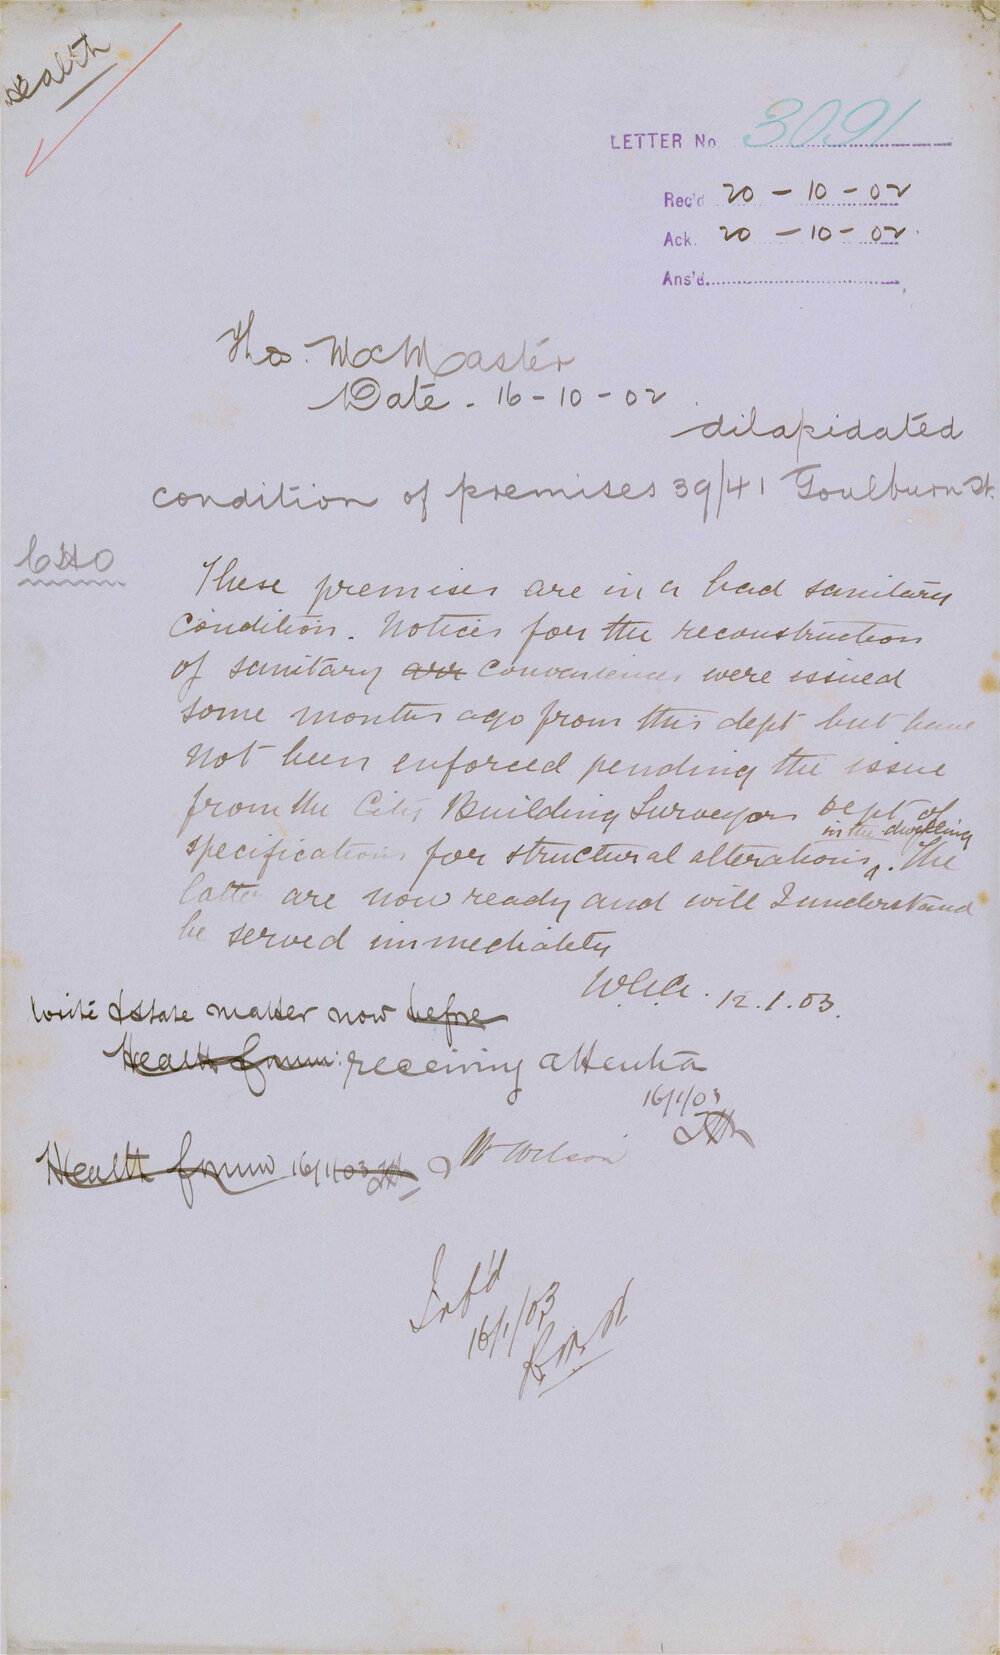 Health
LETTER No 3091
Rec'd 20-10-02
Ack. 20-10-02.
Ans'd
Thos. McMaster
Date - 16-10-02
dilapidated
condition of premises 39/41 Goulburn St.
CHO
These premises are in a bad sanitary
condition. Notices for the reconstruction
of sanitary conveniences were issued
some months ago from this dept but have
not been enforced pending the issue
from the City Building Surveyors Dept of
in the dwelling
specifications for structural alterations. The
latter are now ready and will I understand
be served immediately
12.1.03.
Write Estate matter now before
Health Comm: receiving attention
16/1/03
Health Comm 16/1/03 W Wilson
Inf'd
16/1/03